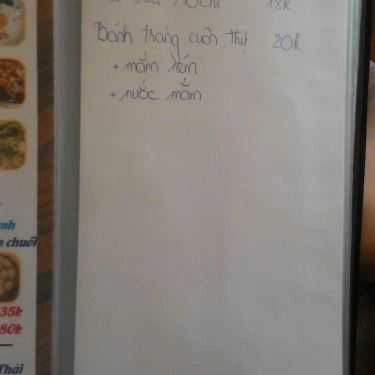 18k
Bánh tráng cuốn thịt 20k
+ mắm nêm
+ nước mắm
chuối
35k
80k
Thái